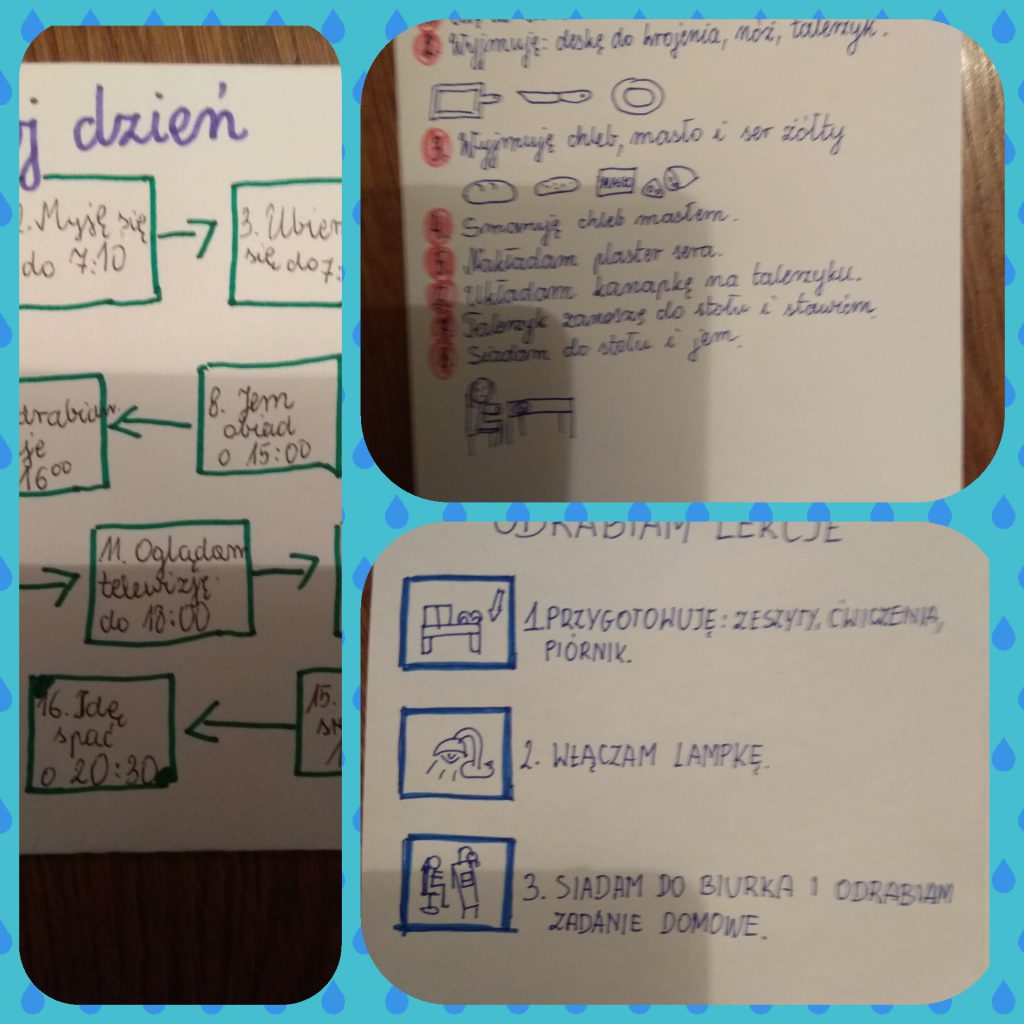 j dzień
2. Myję się
do 7:10
3. Ubier
się do 7:
8. Jem
obiad
o 15:00
drabiam
je
16⁰⁰
11. Oglądam
telewizję
do 18:00
16. Idę
spać
o 20:30
15.
2. Wyjmuję: deskę do krojenia, nóż, talerzyk.
3. Wyjmuję chleb, masło i ser żółty
MASŁO
4. Smaruję chleb masłem.
5. Nakładam plaster sera.
Układam kanapkę na talerzyku.
Talerzyk zanoszę do stołu i stawiam.
Siadam do stołu i jem.
ODRABIAM LEKCJE
1. PRZYGOTOWUJĘ: ZESZYTY, ĆWICZENIA,
PIÓRNIK.
2. WŁĄCZAM LAMPKĘ.
3. SIADAM DO BIURKA I ODRABIAM
ZADANIE DOMOWE.